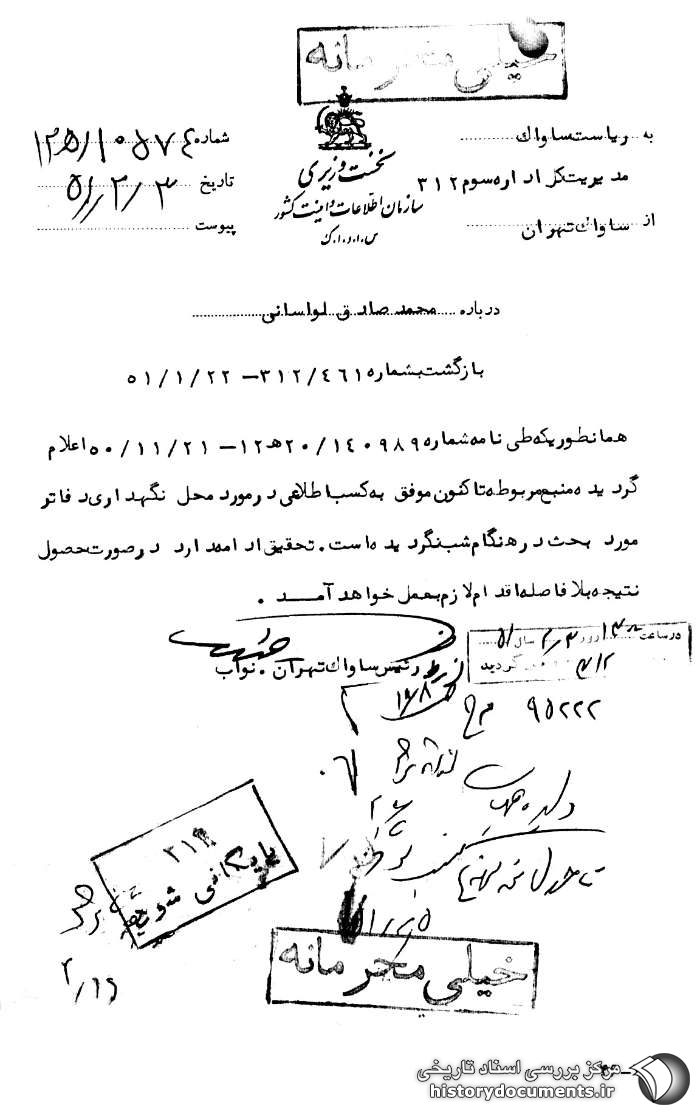 خیلی محرمانه
به ریاست ساواک
مدیریت کل اداره سوم ۳۱۲
از ساواک تهران
نخست وزیری
سازمان اطلاعات و امنیت کشور
س.ا.و.ا.ک
شماره
تاریخ ۵۱/۲/۳
پیوست
درباره محمد صادق لواسانی
بازگشت بشماره ۳۱۲/٤٦۱ – ۵۱/۱/۲۲
همانطوریکه طی نامه شماره ۲۰/۱٤۰۹۸۹ ه‍ ۱۲ – ۵۰/۱۱/۲۱ اعلام
گردیده منبع مربوطه تاکنون موفق به کسب اطلاعی در مورد محل نگهداری دفاتر
مورد بحث در هنگام شب نگردیده است. تحقیق ادامه دارد در صورت حصول
نتیجه بلافاصله اقدام لازم بعمل خواهد آمد .
رئیس ساواک تهران . نواب
در ساعت روز سال ۵۱
گردید
۹۵۲۲۲
۳۱۲
بایگانی شود
۵۱/۲/۵
خیلی محرمانه
۲/۱۶
مرکز بررسی اسناد تاریخی
historydocuments.ir